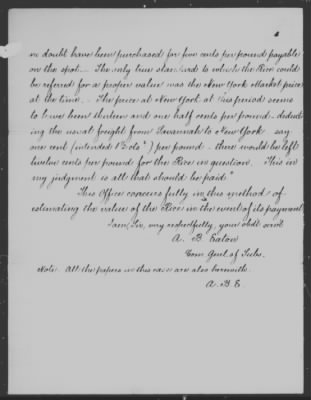 no doubt have been purchased for five cents per pound payable
on the spot. The only true standard to which the Rice could
be referred for a proper value was the New York Market price
at the time. The price at New York at this period seems
to have been thirteen and one half cents per pound - deduct
ing the usual freight from Savannah to New York say
one cent (intended 1½ cts") per pound - there would be left
twelve cents per pound for the Rice in question. This in
my judgment is all that should be paid"
This Office concurs fully in this method of
estimating the value of the Rice in the event of its payment,
I am, Sir, very respectfully, your obdt servt
A. B. Eaton
Com Genl. of Subs.
Note. All the papers in this case are also herewith.
A. B E.